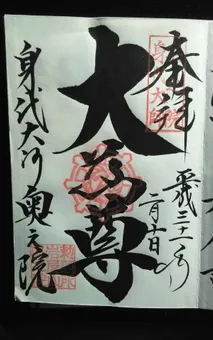 奉拝
平成三十一年
二月十日
大慈尊
身代大師奥之院